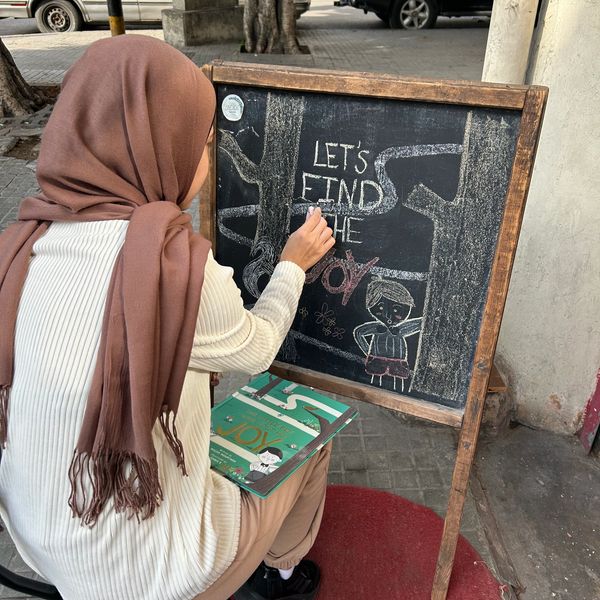 LET'S
FIND
THE
JOY
JOY